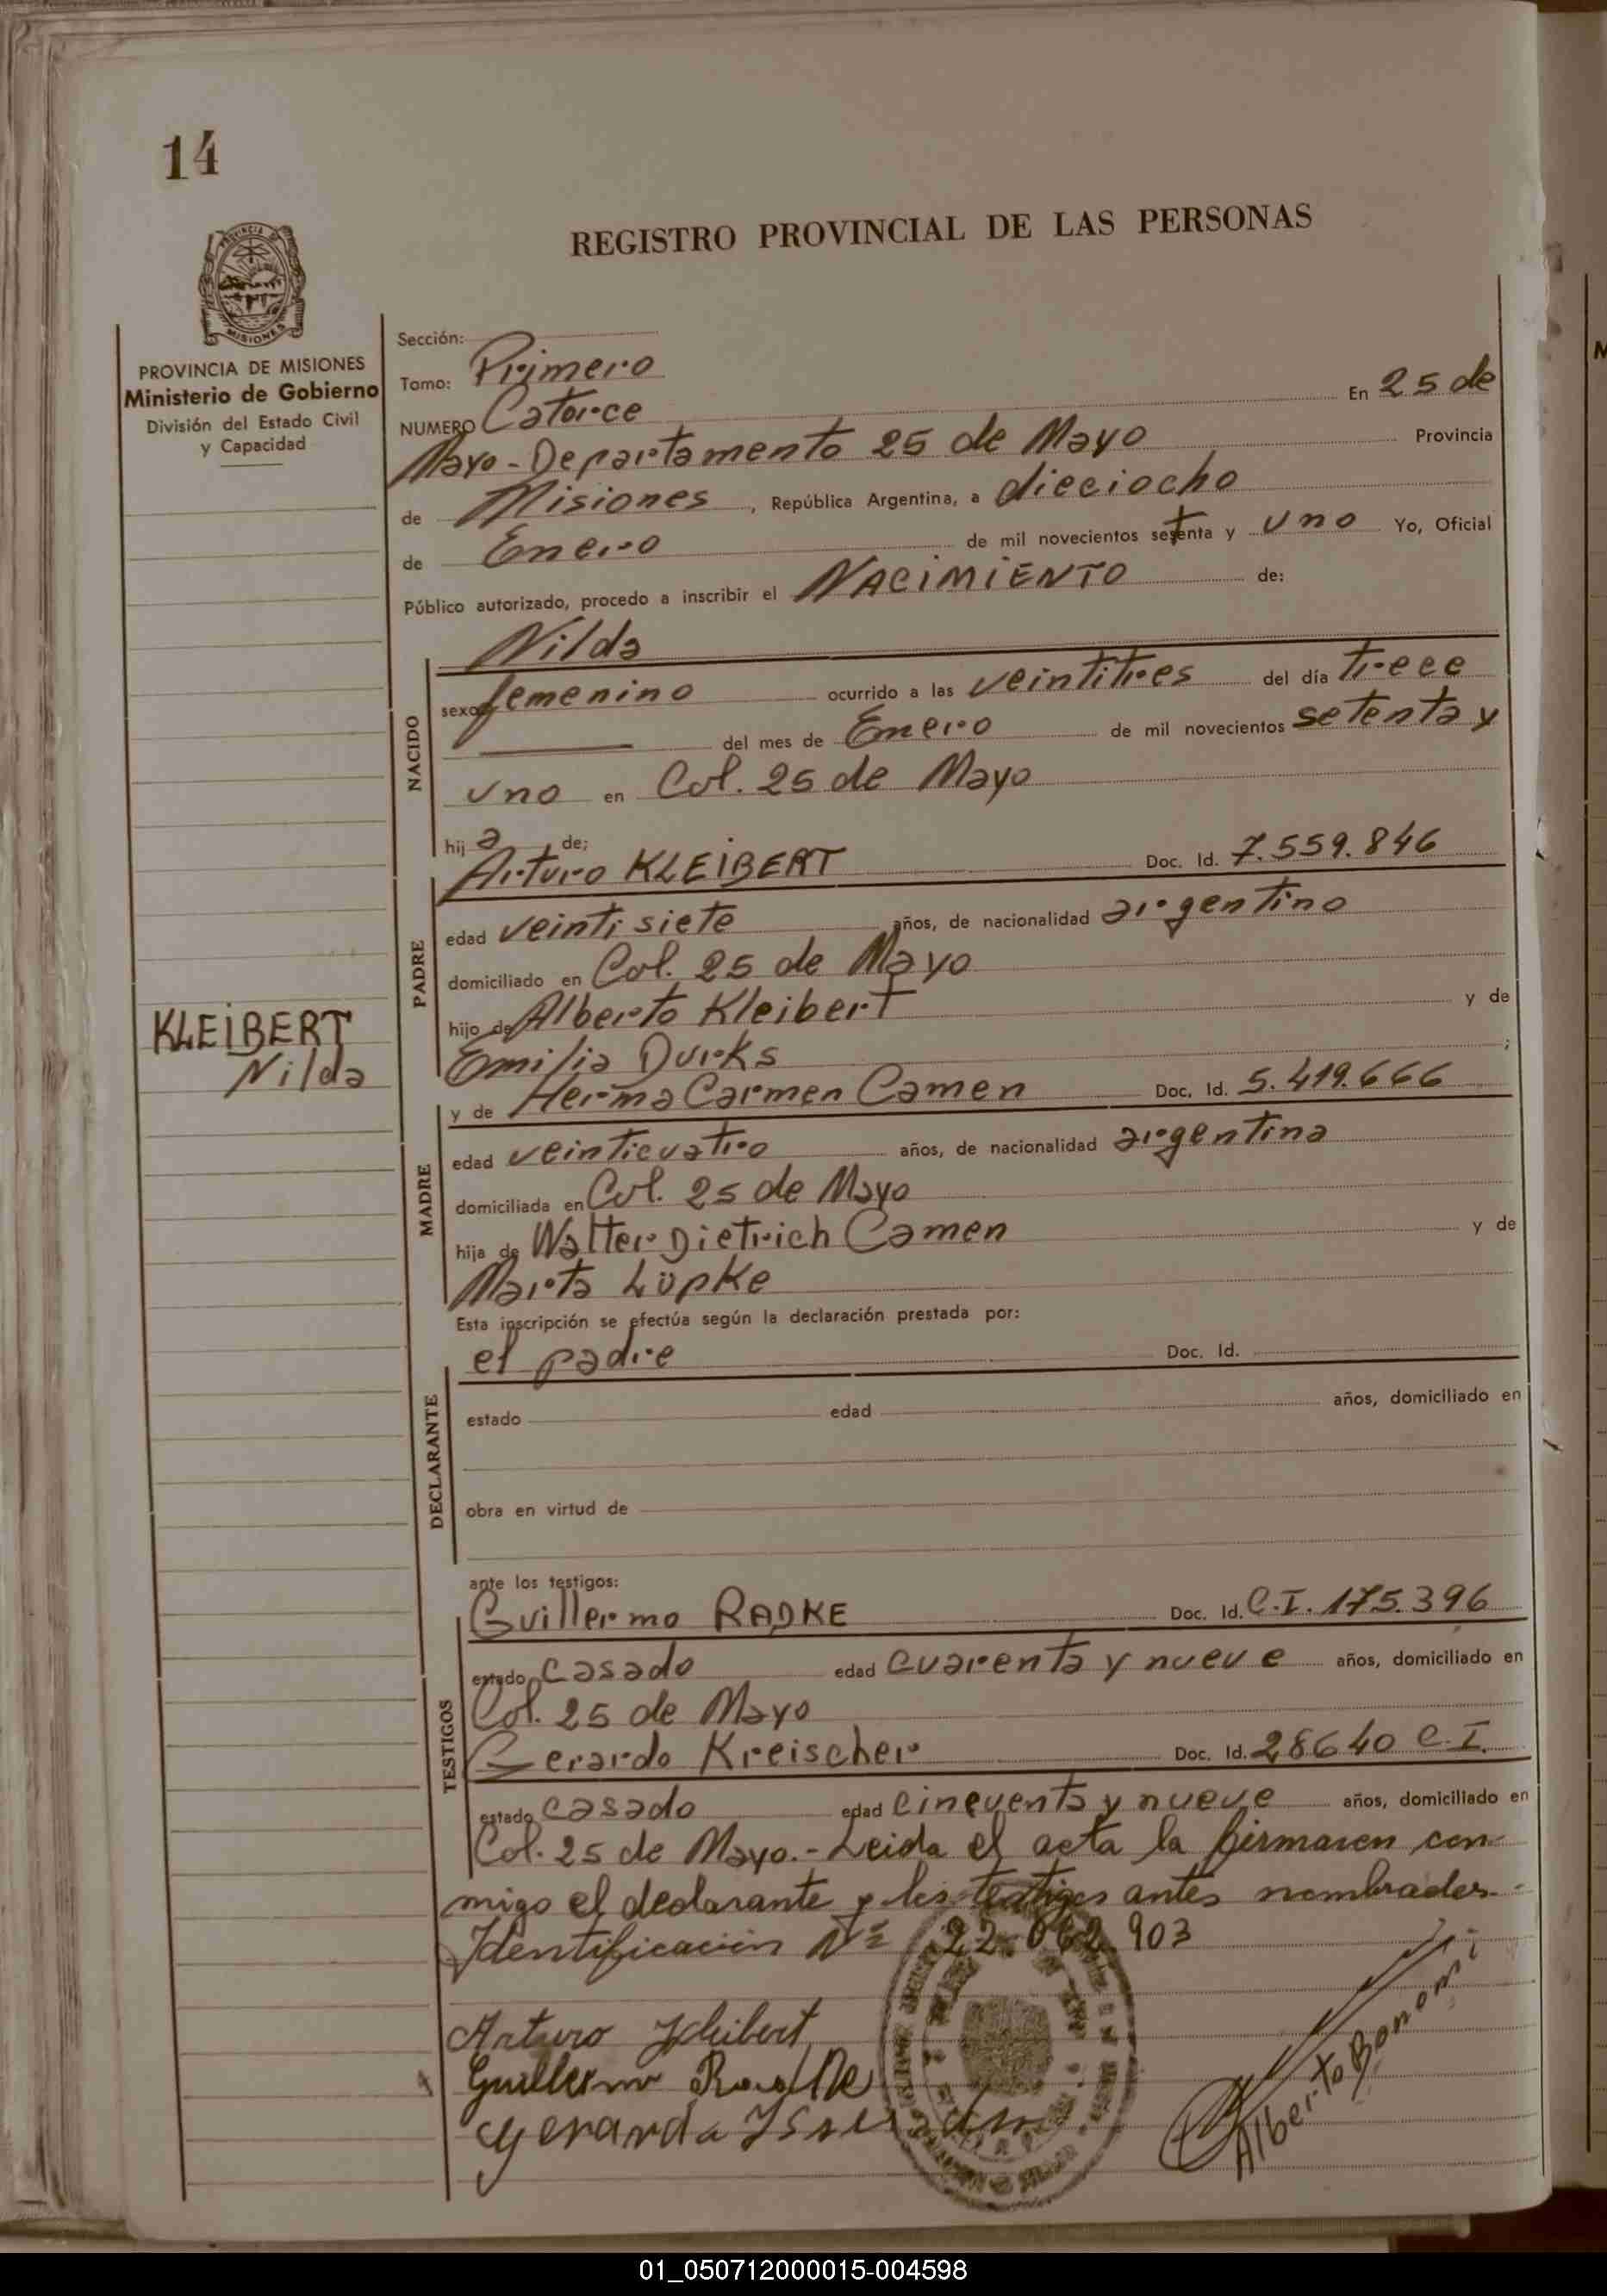 14
REGISTRO PROVINCIAL DE LAS PERSONAS
PROVINCIA DE
MISIONES
PROVINCIA DE MISIONES
Ministerio de Gobierno
División del Estado Civil
y Capacidad
KLEIBERT
Nilda
Sección:
Tomo: Primero
NUMERO Catorce En 25 de
Mayo - Departamento 25 de Mayo Provincia
de Misiones, República Argentina, a dieciocho
de Enero de mil novecientos setenta y uno Yo, Oficial
Público autorizado, procedo a inscribir el NACIMIENTO de:
Nilda
NACIDO
sexo femenino ocurrido a las veintitres del día trece
del mes de Enero de mil novecientos setenta y
uno en Col. 25 de Mayo
hij a de:
Arturo KLEIBERT Doc. Id. 7.559.846
PADRE
edad veintisiete años, de nacionalidad argentino
domiciliado en Col. 25 de Mayo
hijo de Alberto Kleibert y de
Emilia Durks ;
y de Herma Carmen Camen Doc. Id. 5.419.666
MADRE
edad veinticuatro años, de nacionalidad argentina
domiciliada en Col. 25 de Mayo
hija de Walter Dietrich Camen y de
Marta Lüpke
Esta inscripción se efectúa según la declaración prestada por:
el padre Doc. Id.
DECLARANTE
estado edad años, domiciliado en
obra en virtud de
ante los testigos:
Guillermo RADKE Doc. Id. C.I. 175.396
TESTIGOS
estado casado edad cuarenta y nueve años, domiciliado en
Col. 25 de Mayo
Gerardo Kreischer Doc. Id. 28640 C.I.
estado casado edad cincuenta y nueve años, domiciliado en
Col. 25 de Mayo.- Leida el acta la firmaron con-
migo el declarante y los testigos antes nombrados.-
Identificación Nº 22.062.903
Arturo Kleibert
Guillermo Radke
Gerardo
Alberto Bonomi
01_050712000015-004598